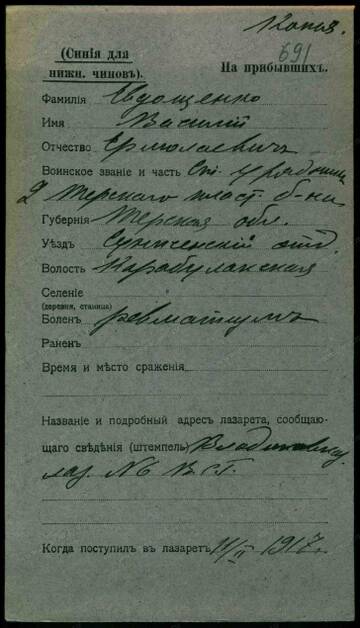 1 копія.
691
(Синія для нижн. чиновъ). На прибывшихъ.
Фамилія Евдощенко
Имя Василій
Отчество Ермолаевичъ
Воинское званіе и часть Ст. Урядникъ
2 Терскаго пласт. б-на
Губернія Терская обл.
Уѣздъ Сунженскій отд.
Волость Карабулакская
Селеніе
(деревня, станица)
Болен ревматизмъ
Ранен
Время и мѣсто сраженія
Названіе и подробный адресъ лазарета, сообщаю-
щаго свѣдѣнія (штемпель) Владикавказ.
лаз. №6 В.С.Г.
Когда поступилъ въ лазаретъ 11/II 1917 г.